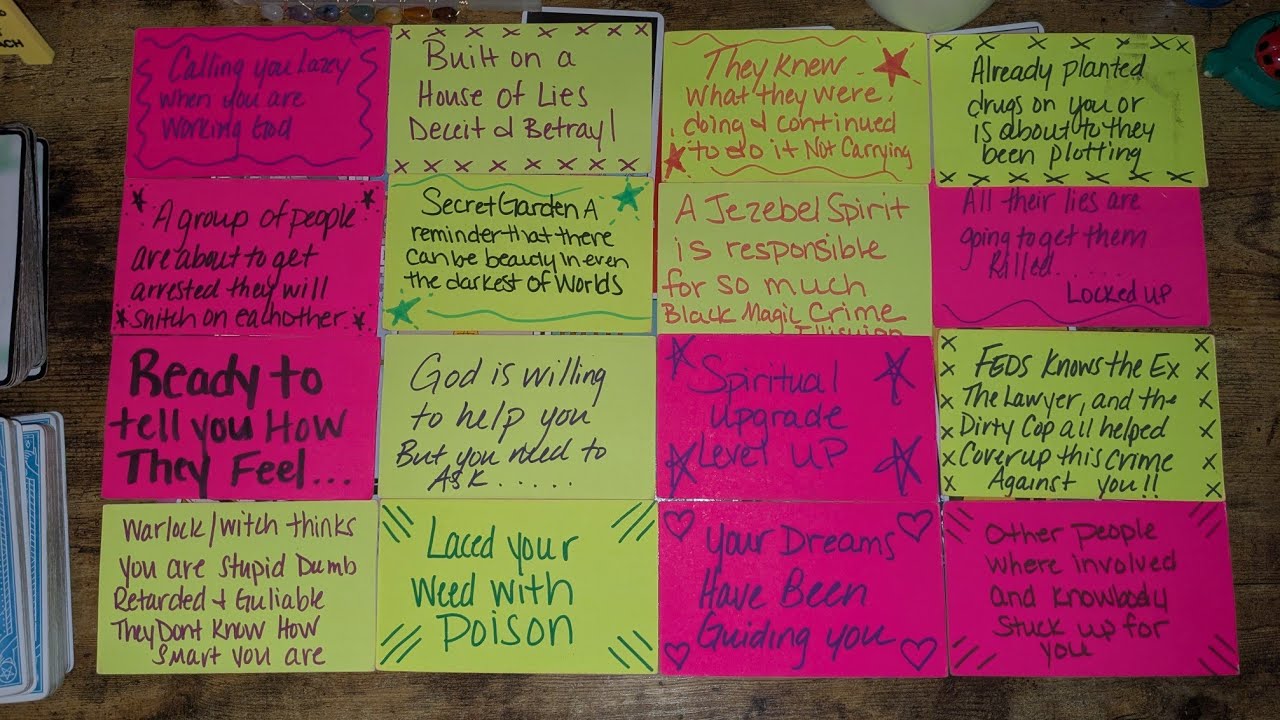 ACH
Calling you Lazey
when you are
working God
Built on a
House of Lies
Deceit & Betrayl
They knew
what they were
doing & continued
to do it Not Carrying
Already planted
drugs on you or
is about to they
been plotting
A group of people
are about to get
arrested they will
snitch on eachother
Secret Garden A
reminder that there
can be beauty in even
the darkest of Worlds
A Jezebel Spirit
is responsible
for so much
Black Magic Crime
All their lies are
going to get them
Killed......
Locked up
Ready to
tell you How
They Feel...
God is willing
to help you
But you need to
ASK.....
Spiritual
upgrade
Level UP
FEDS Knows the Ex
The Lawyer, and the
Dirty Cop all helped
Coverup this crime
Against you!!
Warlock/witch thinks
you are stupid Dumb
Retarded & Guliable
They Dont Know How
Smart you are
Laced your
Weed with
Poison
Your Dreams
Have Been
Guiding you
Other people
where involved
and knowbody
stuck up for
you